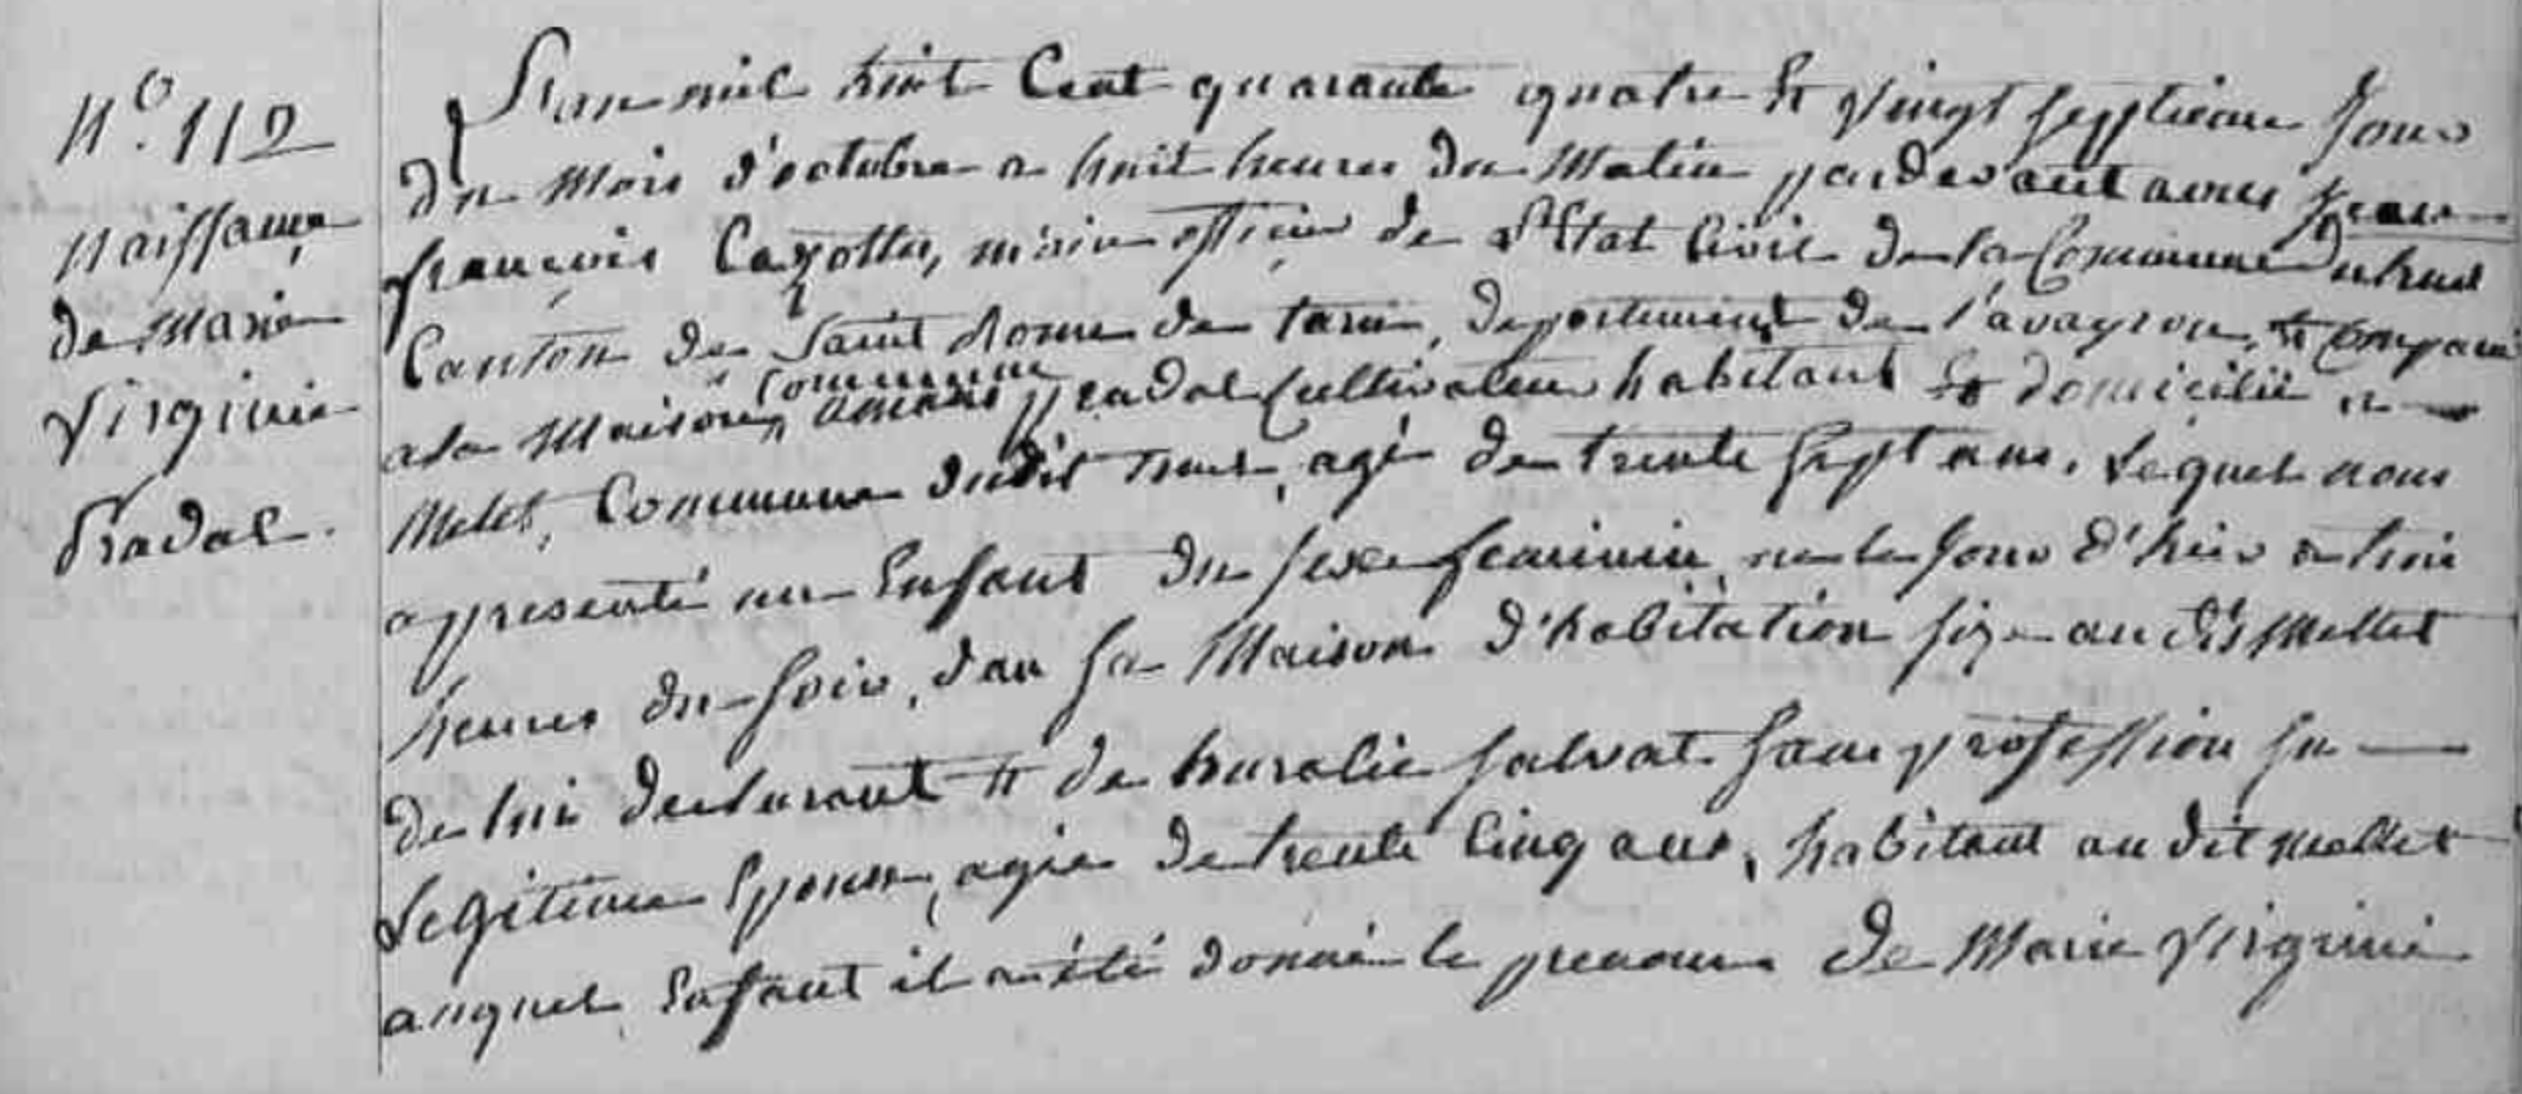 N.o 112
Naissance
de Marie
Virginie
Pradal.
L'an mil huit Cent quarante quatre et Vingt septieme Jour
du Mois d'octobre a huit heures du Matin pardevant nous Jean
françois Cazottes, maire officier de l'Etat Civil de la Commune du truel
Canton de Saint Rome de tarn, departement de l'aveyron, et Comparu
a la Maison commune amans pradal Cultivateur habitant et domicilié a
Melet, Commune dudit truel, agé de trente sept ans, Lequel nous
a presenté un Enfant du sexe feminin né le Jour d'hier a trois
heures du soir, dan sa Maison d'habitation size au dit Mellet
de lui declarant et de Salvat sans profession sa
Legitime Epouse, agée de trente Cinq ans, habitant au dit mellet
auquel Enfant il a été donné le prenom de Marie Virginie